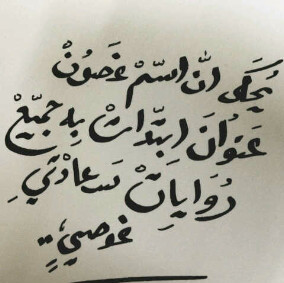 يُحكى انّ اسّمْ غصونْ
عَنوُانَ ابتدّاتْ بهِ جميّعْ
رُوَاياتْ سَعادْتيِ
غوصيِ،..